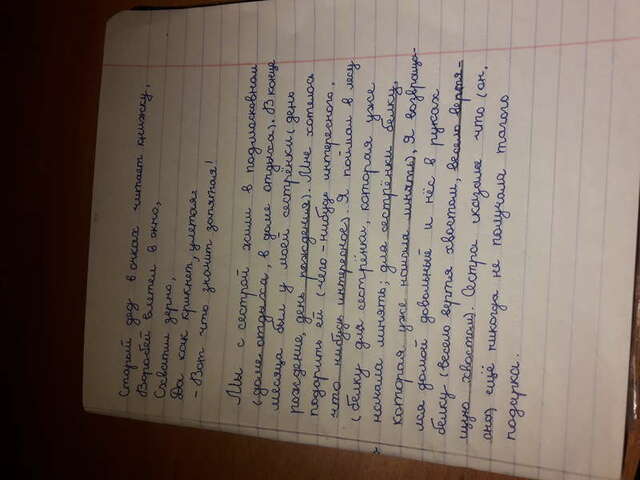 Старый дед в очках читает книжку,
Воробей влетел в окно,
Схватил зерно,
Да как крикнет, улетая:
- Вот что значит запятая!
Мы с сестрой жили в подмосковном
(доме отдыха, в доме отдыха). В конце
месяца был у моей сестрёнки (день
рождение, день рождения). Мне хотелось
подарить ей (чего-нибудь интересного,
что нибудь интересное). Я поймал в лесу
(белку для сестрёнки, которая уже
начала линять; для сестрёнки белку,
которая уже начала линять), я возвраща-
лся домой довольный и нёс в руках
белку (весело вертя хвостом, весело вертя-
щую хвостом). Сестра сказала что (он,
она) ещё никогда не получала такого
подарка.